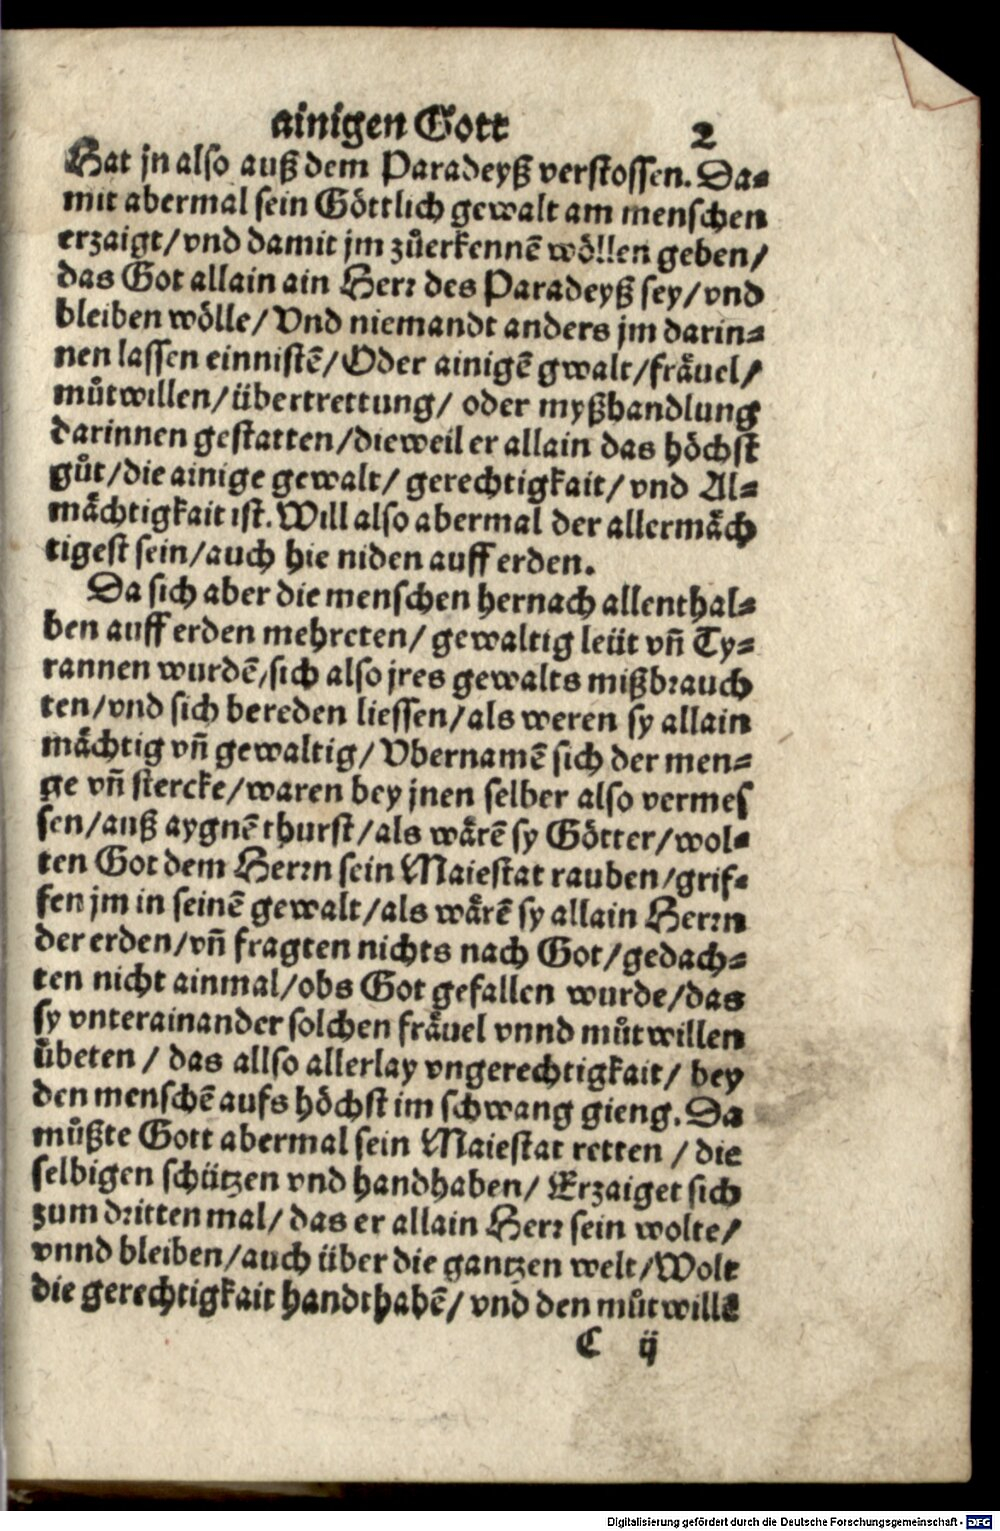 ainigen Gott 2
Hat jn also auß dem Paradeyß verstossen. Da-
mit abermal sein Göttlich gewalt am menschen
erzaigt/vnd damit jm zůerkennē wöllen geben/
das Got allain ain Herr des Paradeyß sey/vnd
bleiben wölle/Vnd niemandt anders jm darin-
nen lassen einnistē/Oder ainigē gwalt/fräuel/
můtwillen/übertrettung/ oder myßhandlung
darinnen gestatten/dieweil er allain das höchst
gůt/die ainige gewalt/ gerechtigkait/ vnd Al-
mächtigkait ist. Will also abermal der allermäch
tigest sein/auch hie niden auff erden.
Da sich aber die menschen hernach allenthal-
ben auff erden mehreten/ gewaltig leüt vñ Ty-
rannen wurdē/sich also jres gewalts mißbrauch
ten/vnd sich bereden liessen/als weren sy allain
mächtig vñ gewaltig/ Vbernamē sich der men-
ge vñ stercke/waren bey jnen selber also vermes
sen/auß aygnē thurst/als wärē sy Götter/wol-
ten Got dem Herrn sein Maiestat rauben/grif-
fen jm in seinē gewalt/als wärē sy allain Herrn
der erden/vñ fragten nichts nach Got/gedach-
ten nicht ainmal/obs Got gefallen wurde/das
sy vnterainander solchen fräuel vnnd můtwillen
übeten / das allso allerlay vngerechtigkait/ bey
den menschē aufs höchst im schwang gieng. Da
můßte Gott abermal sein Maiestat retten / die
selbigen schützen vnd handhaben/ Erzaiget sich
zum dritten mal/ das er allain Herr sein wolte/
vnnd bleiben/auch über die gantzen welt/Wolt
die gerechtigkait handthabē/ vnd den můtwillē
C ij
Digitalisierung gefördert durch die Deutsche Forschungsgemeinschaft - DFG